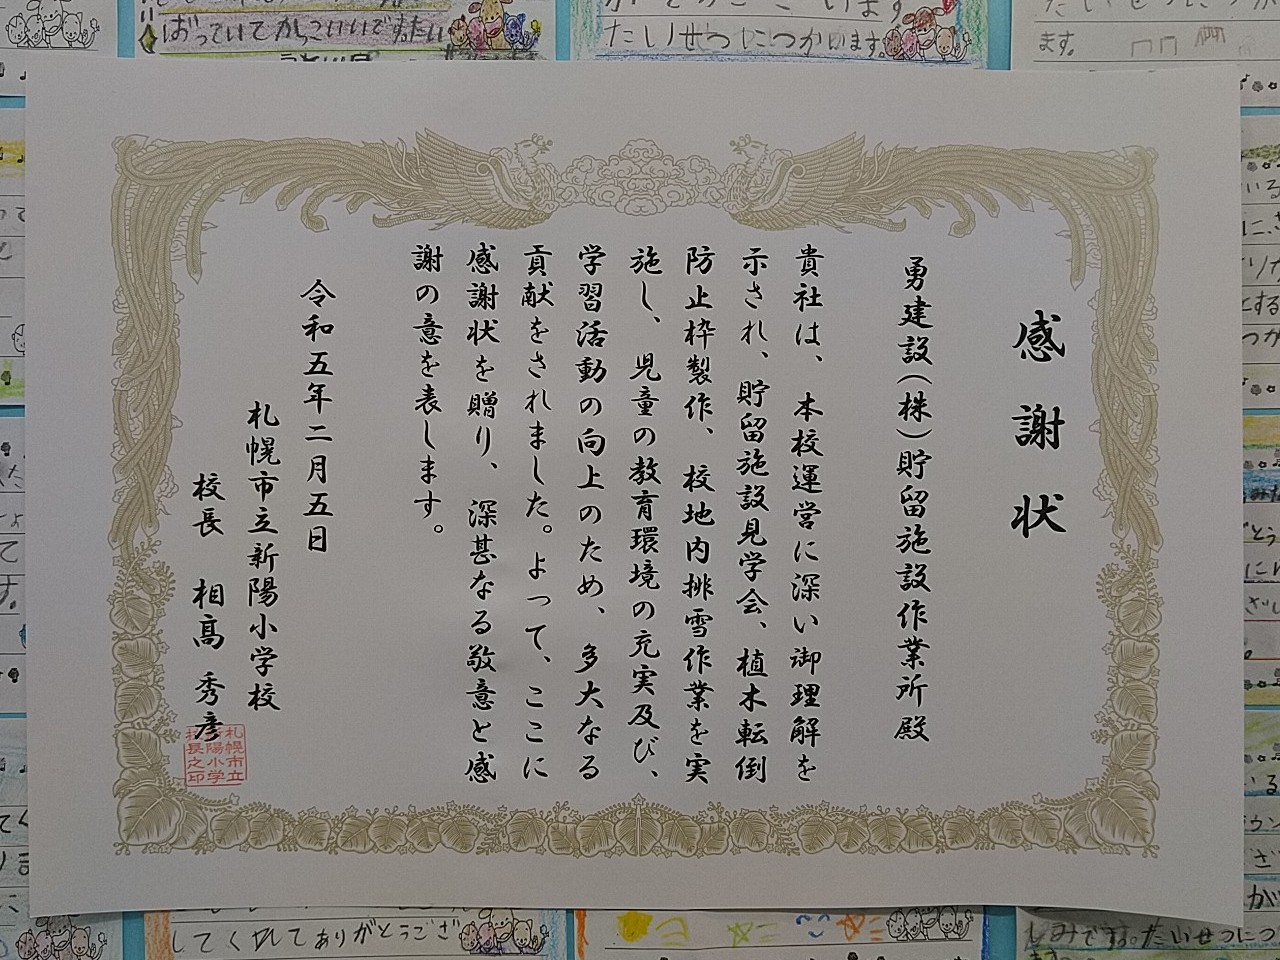 感謝状
勇建設(株)貯留施設作業所殿
貴社は、本校運営に深い御理解を
示され、貯留施設見学会、植木転倒
防止枠製作、校地内排雪作業を実
施し、児童の教育環境の充実及び、
学習活動の向上のため、多大なる
貢献をされました。よって、ここに
感謝状を贈り、深甚なる敬意と感
謝の意を表します。
令和五年二月五日
札幌市立新陽小学校
校長 相高 秀彦
札幌市立
新陽小学
校長之印
ばっていてかっこいいですね
たいせつにつかいます。
ます。
してくれてありがとうござ
しみです。たいせつにつ